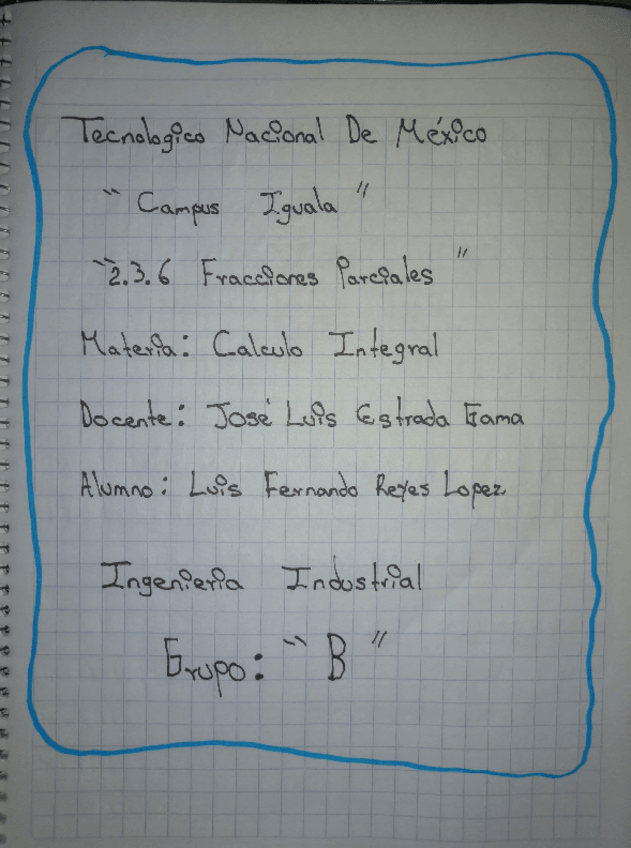 Tecnologico Nacional De México
" Campus Iguala "
"2.3.6 Fracciones Parciales "
Materia: Calculo Integral
Docente: José Luis Estrada Gama
Alumno: Luis Fernando Reyes Lopez
Ingenieria Industrial
Grupo: " B "